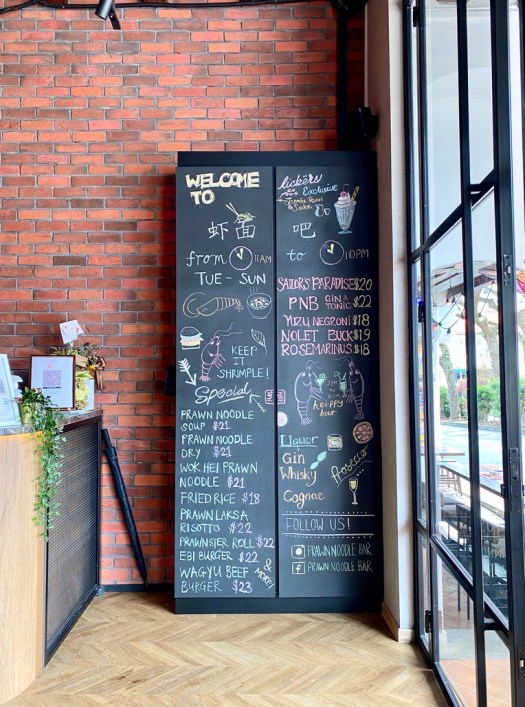 WELCOME
TO
虾面
from 11AM
TUE - SUN
KEEP
IT
SHRIMPLE!
Special
PRAWN NOODLE
SOUP $21
PRAWN NOODLE
DRY $21
WOK HEI PRAWN
NOODLE $21
FRIED RICE $18
PRAWN LAKSA
RISOTTO $22
PRAWNSTER ROLL $22
EBI BURGER $22
WAGYU BEEF
BURGER $23
& MORE
Exclusive
吧
to 10PM
SAILOR'S PARADISE $20
PNB GIN &
TONIC $22
YUZU NEGRONI $18
NOLET BUCK $19
ROSEMARINUS $18
hour
Liquor
Gin
Whisky
Cognac
Prosecco
FOLLOW US!
PRAWN NOODLE BAR
PRAWN NOODLE BAR